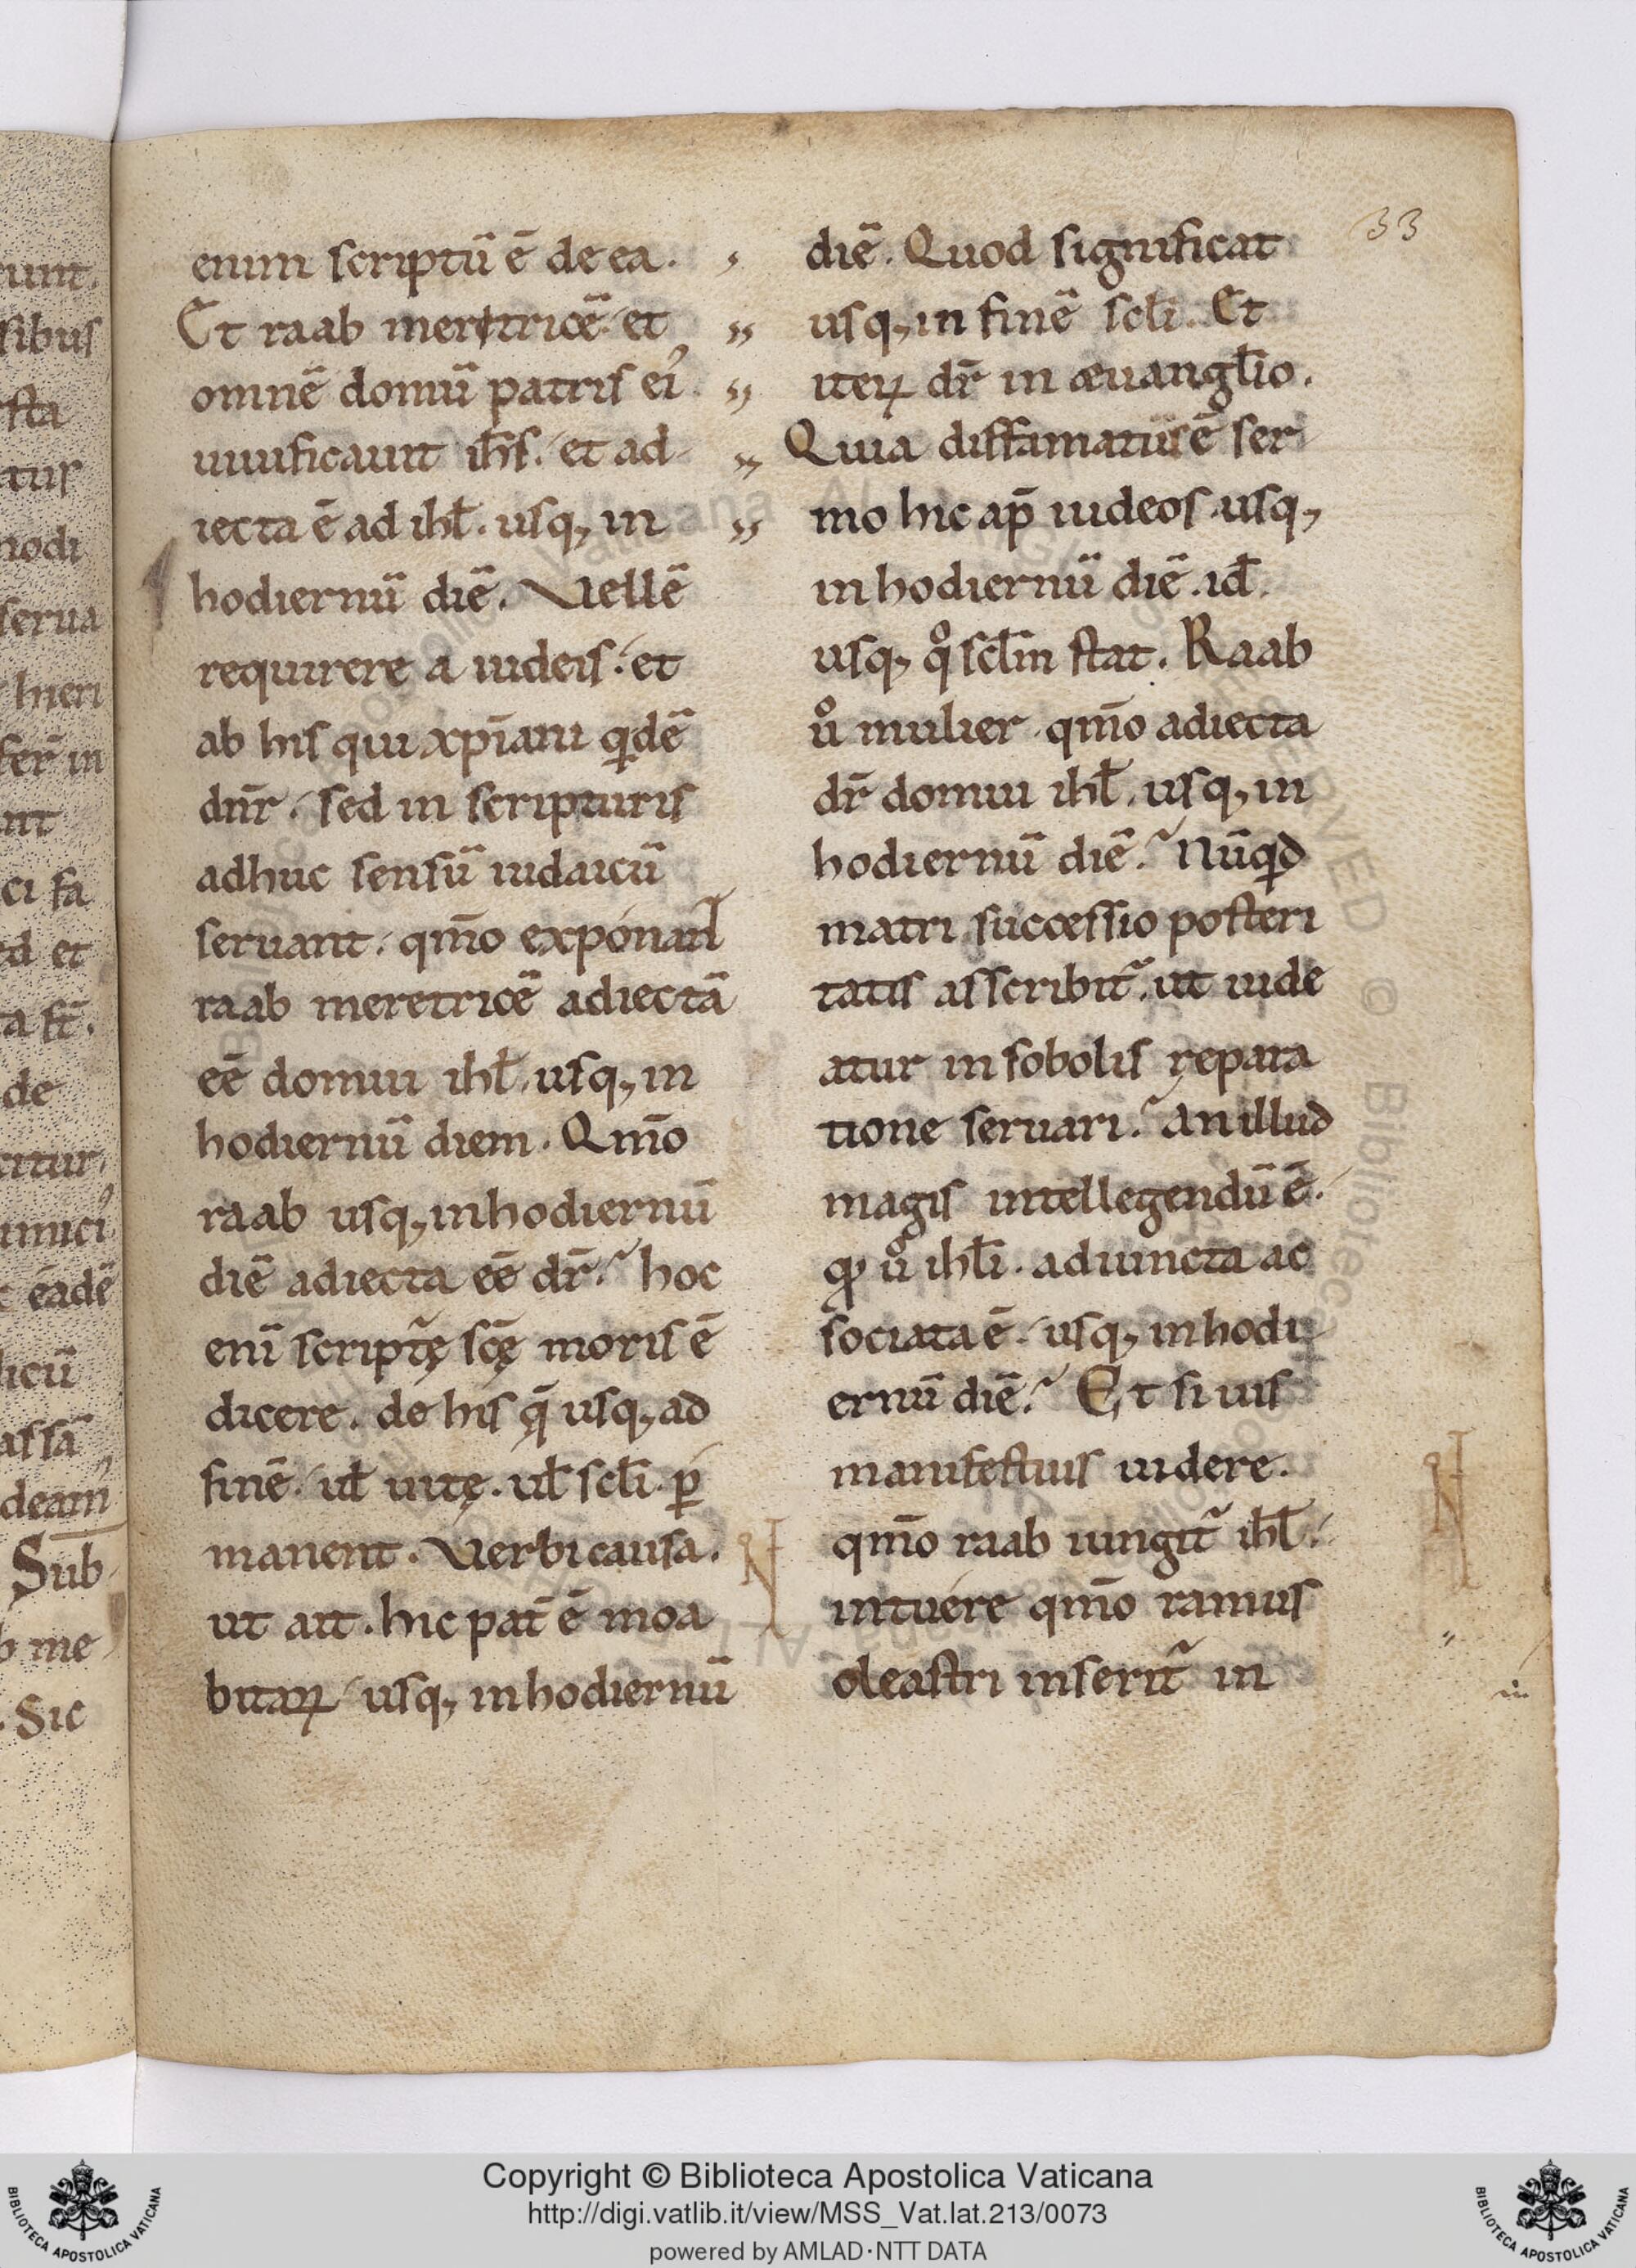 33
enim scriptū ē de ea.
Et raab meretricē. et
omnē domū patris ei᾿
uiuificauit ih̄s. et ad-
iecta ē ad ihl̄. usq; in
hodiernū diē. Vellē
requirere a iudeis. et
ab his qui xp̄iani qidē
dn̄r. sed in scripturis
adhuc sensū iudaicū
seruant. qm̄o exponant
raab meretricē adiectā
eē domui ihl̄. usq; in
hodiernū diem. Qm̄o
raab usq; in hodiernū
diē adiecta eē dr̄? hoc
enī scriptᷓę scę̄ moris ē
dicere. de his q̄ usq; ad
finē. ul̄ uitę. ul̄ scl̄i. ꝑ
manent. Verbi causa.
ut ait. hic pat̄ ē moa
bitaꝝ usq; in hodiernū
diē. Quod significat
usq; in finē scl̄i. Et
iteꝝ dr̄ in æuangl̄io.
Quia diffamatus ē ser
mo hic ap̄ iudeos. usq;
in hodiernū diē. id̄.
usq; qͦ scl̄m stat. Raab
uͦ mulier qm̄o adiecta
dr̄ domui ihl̄. usq; in
hodiernū diē? Nūqid
matri successio posteri
tatis asscribit᷑. ut uide
atur in sobolis repara
tione seruari? An illud
magis intellegendū ē.
qͥ uͦ ihl̄i. adiuncta ac
sociata ē. usq; in hodi
ernū diē? Et si uis
manifestius uidere.
qm̄o raab iungit᷑ ihl̄.
intuere qm̄o ramus
oleastri inserit᷑ in
unt.
sibus
sta
tus
nodi
serua
hieri
fer̄ in
nt
ci fa
ed et
a st̄.
de
ritur.
imici
eādē
licū
assā
Sub
b me
. Sic
Copyright © Biblioteca Apostolica Vaticana
http://digi.vatlib.it/view/MSS_Vat.lat.213/0073
powered by AMLAD·NTT DATA
BIBLIOTECA APOSTOLICA VATICANA
BIBLIOTECA APOSTOLICA VATICANA